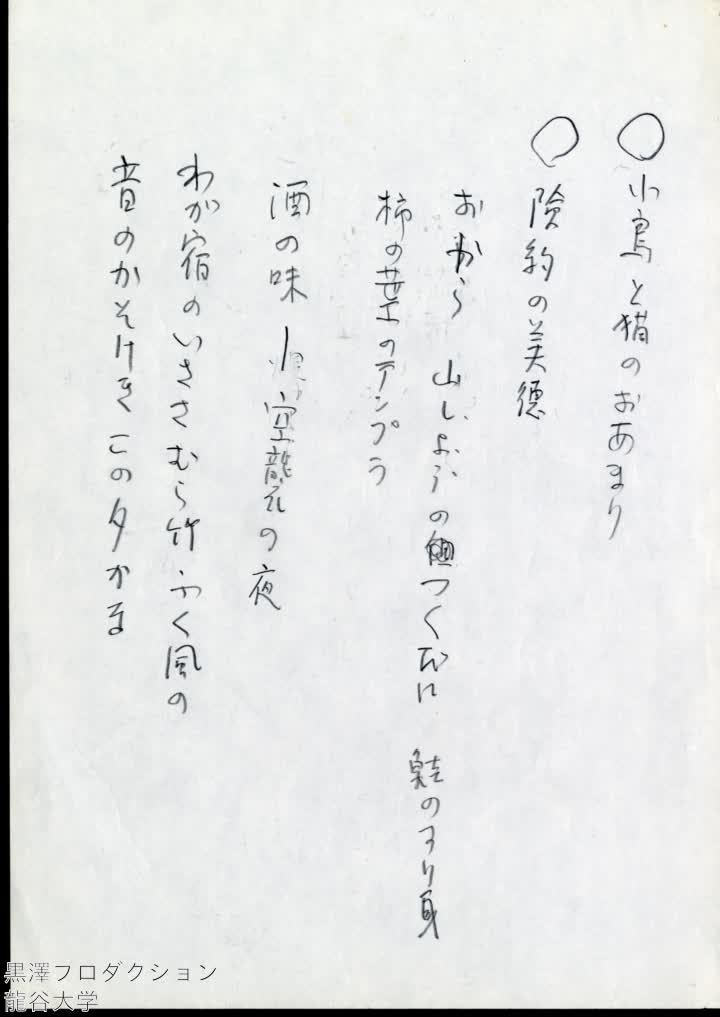 ○ 小鳥と猫のおあまり
○ 険約の美徳
おから 山しょうぶの つくだに 鮭のすり身
柿の葉のテンプラ
酒の味 ー 空襲の夜
わが宿のいささむら竹ふく風の
音のかそけきこの夕かも
黒澤プロダクション
龍谷大学